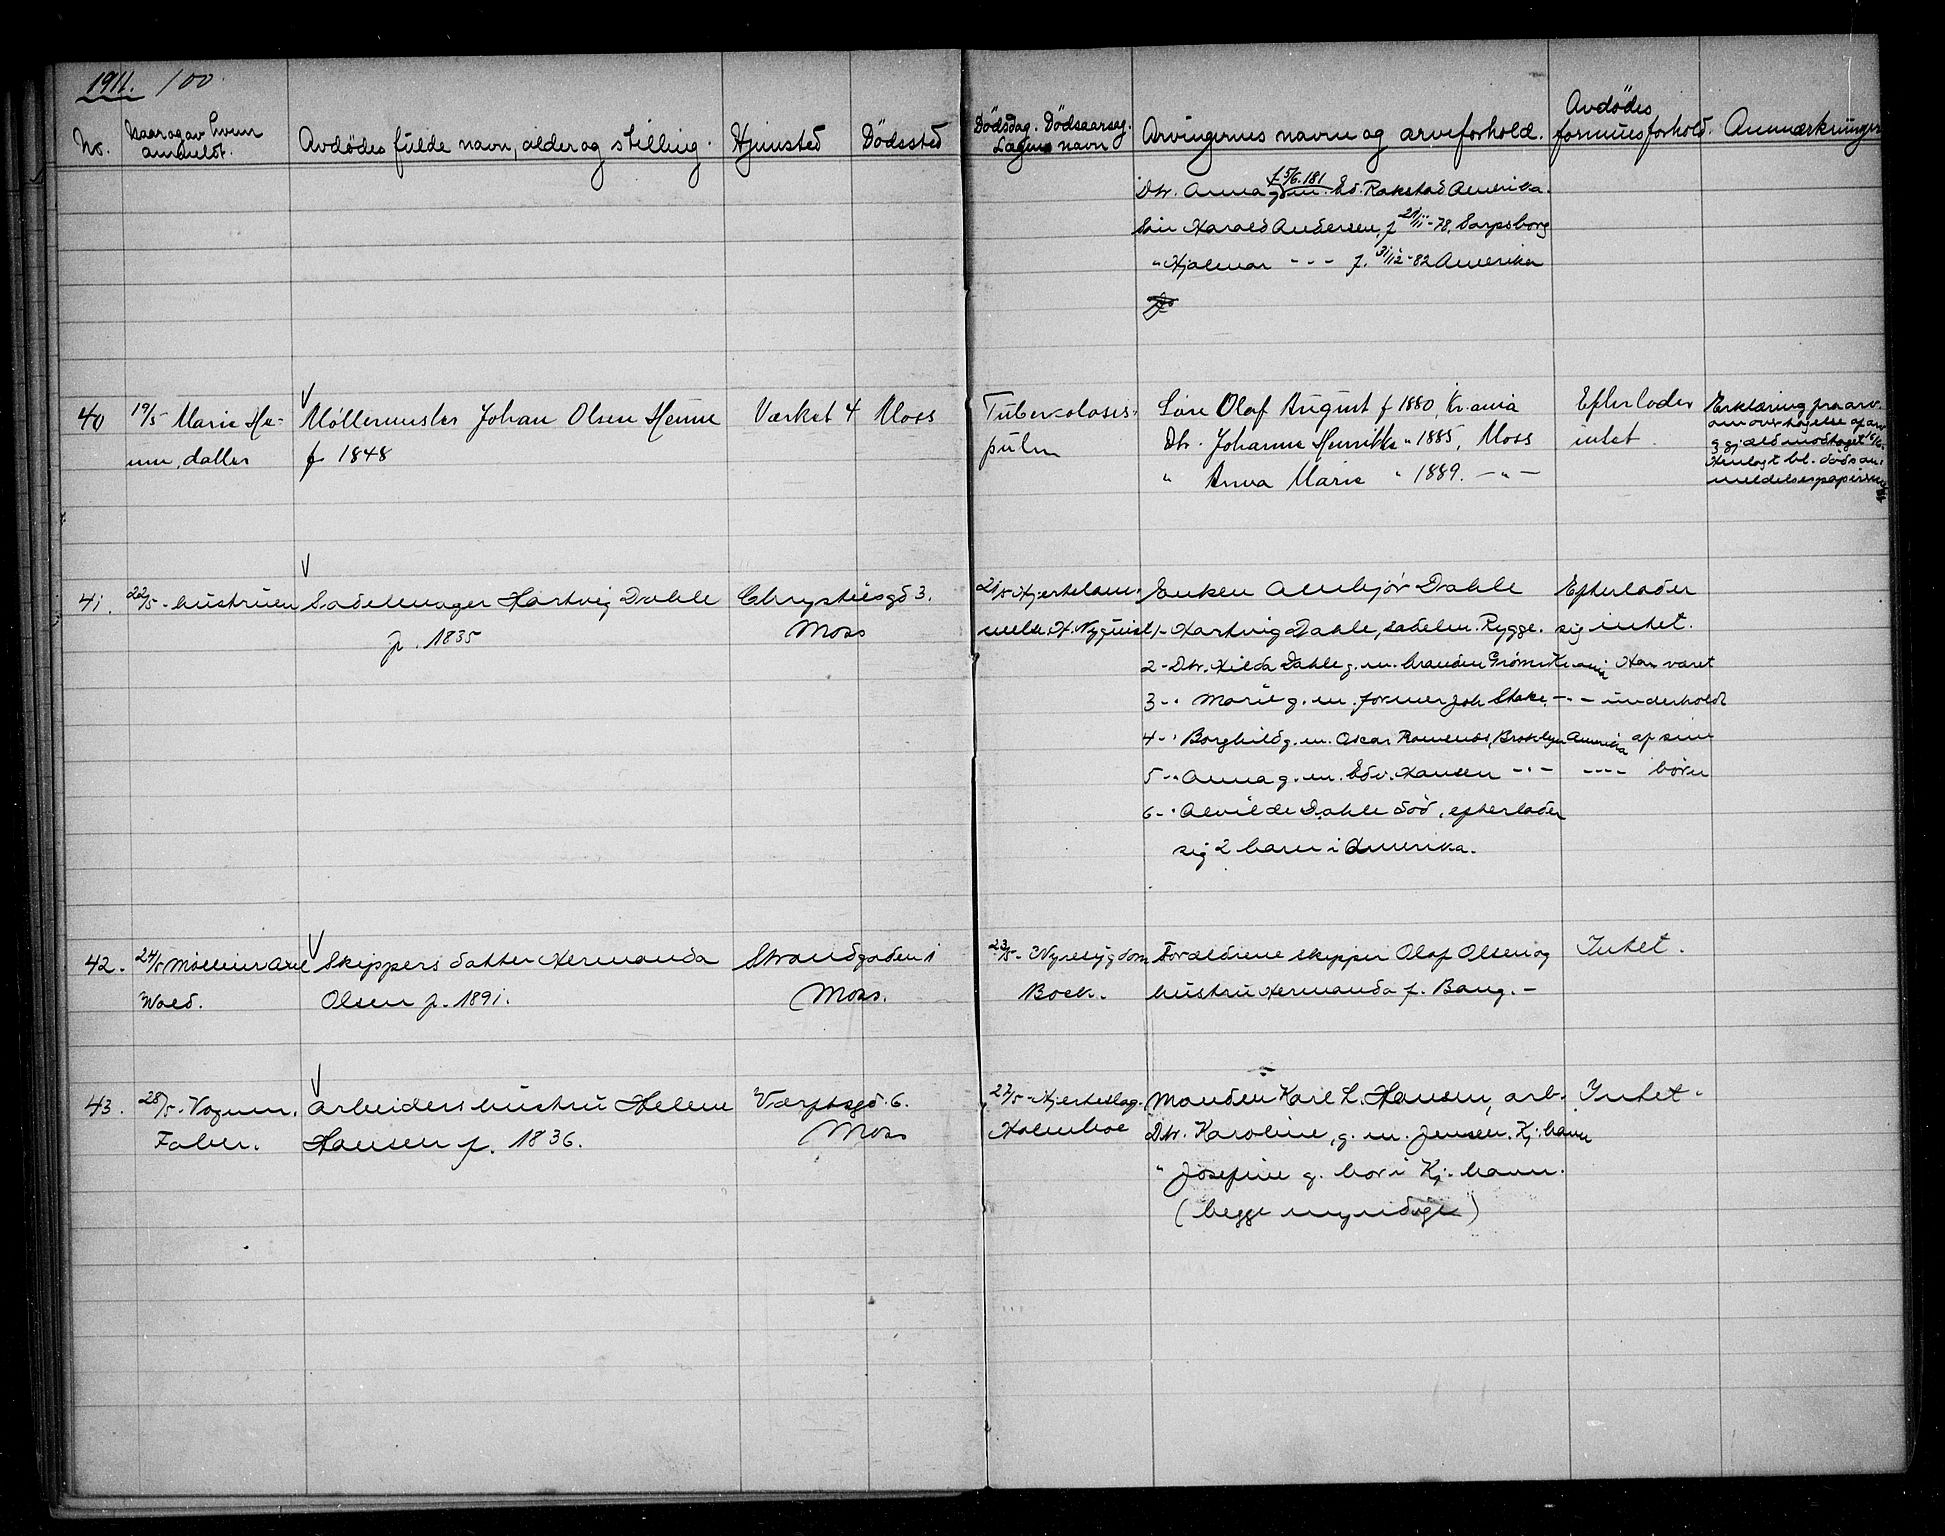 1911. 100.
No. Naar og av hvem anmeldt. Avdödes fulde navn, alder og stilling. Hjemsted Dödssted Dödsdag. Dödsaarsag. Lægens navn Arvingernes navn og arveforhold. Avdödes formuesforhold. Anmærkninger
Dtr. Anna g.m. Ed. Rakstad Amerika.
f. 5/6.181
Sön Harald Andersen, f 21/11-78, Sarpsborg
" Hjalmar - - - f. 31/12-82 Amerika
40 19/5 Marie He- Møllermester Johan Olsen Henne Værket 4 Moss Tuberculosis- Søn Olaf August f 1880, Kr.ania Efterlader Erklæring fra arv.
nne, datter f. 1848 pulm Dtr. Johanne Henrikke " 1885, Moss intet. om overtagelse af arv
" Anna Marie " 1889. -"- g gjæld modtaget
Henlagt bl. dødsan-
meldelsespapirerne
41. 22/5 - hustruen Sadelmager Hartvig Dahle Chrystiesgd 3. 21/5 Hjertelam- Enken Annbjør Dahle Efterlader
f. 1835 Moss melse. H. Nyquist 1- Hartvig Dahle, sadelm. Rygge. sig intet.
2- Dtr. Hilda Dahle g. m. Kr.ania Har været
3- " Marie g. m. former Joh Stake - " - underholdt
4- " Borghild g. m. Oscar Brooklyn Amerika af sine
5- " Anna g. m. Edv. Hansen - " - - - - - børn
6- " Alvilde Dahle død, efterlader
sig 2 barn i Amerika.
42. 24/5 Møller Axel Skippers datter Hermanda Strandgaden 1 23/5 - Nyresygdom Forældrene skipper Olaf Olsen og Intet.
Wold. Olsen f. 1891. Moss. Boek. hustru Hermanda f. Bang. -
43. 28/5. Vognm. Arbeiders hustru Helene Værftsgd. 6. 27/5 - Hjerteslag. Manden Karl L. Hansen, arb. Intet.
Faber. Hansen f. 1836. Moss Holmboe Dtr. Karoline, g. m. Jensen. Kj.havn
" Josefine g. bor i Kj.havn.
(begge myndige)